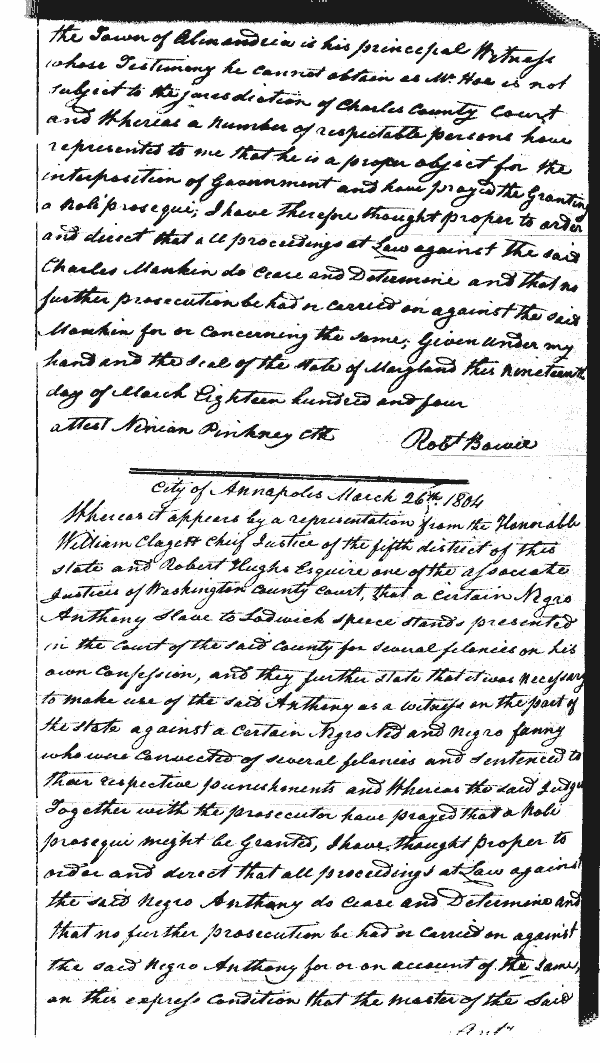 the Town of Alexandria is his principal Witness
whose Testimony he cannot obtain as Mr. Hoe is not
subject to the jurisdiction of Charles County Court
and Whereas a number of respectable persons have
represented to me that he is a proper object for the
interposition of Government and have prayed the Granting
a Noli prosequi; I have therefore thought proper to order
and direct that all proceedings at Law against the said
Charles Mankin do cease and Determine and that no
further prosecution be had or carried on against the said
Mankin for or concerning the same; Given under my
hand and the seal of the state of Maryland this nineteenth
day of March Eighteen hundred and four
attest Ninian Pinkney Clk Robt Bowie
City of Annapolis March 26th 1804
Whereas it appears by a representation from the Honorable
William Clagett Chief Justice of the fifth district of this
state and Robert Hughs Esquire one of the associate
Justices of Washington County Court, that a certain Negro
Anthony slave to Lodwick speece stands presented
in the Court of the said County for several felonies on his
own Confession, and they further state that it was necessary
to make use of the said Anthony as a witness on the part of
the state against a certain Negro Ned and Negro fanny
who were convicted of several felonies and sentenced to
their respective punishments and Whereas the said Judges
Together with the prosecutor have prayed that a Noli
prosequi might be Granted, I have thought proper to
order and direct that all proceedings at Law against
the said Negro Anthony do cease and Determine and
that no further prosecution be had or carried on against
the said Negro Anthony for or on account of the same,
on this express condition that the master of the said